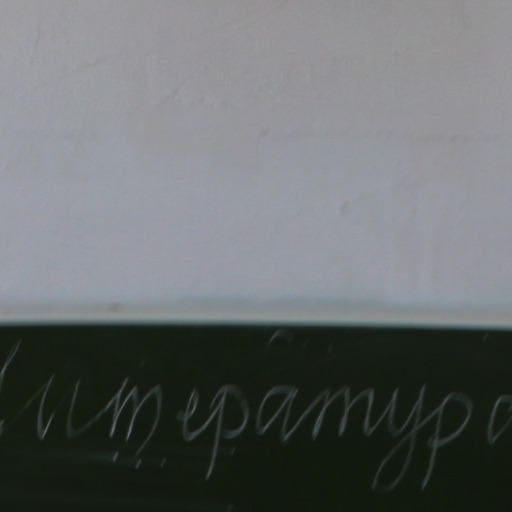 Литература